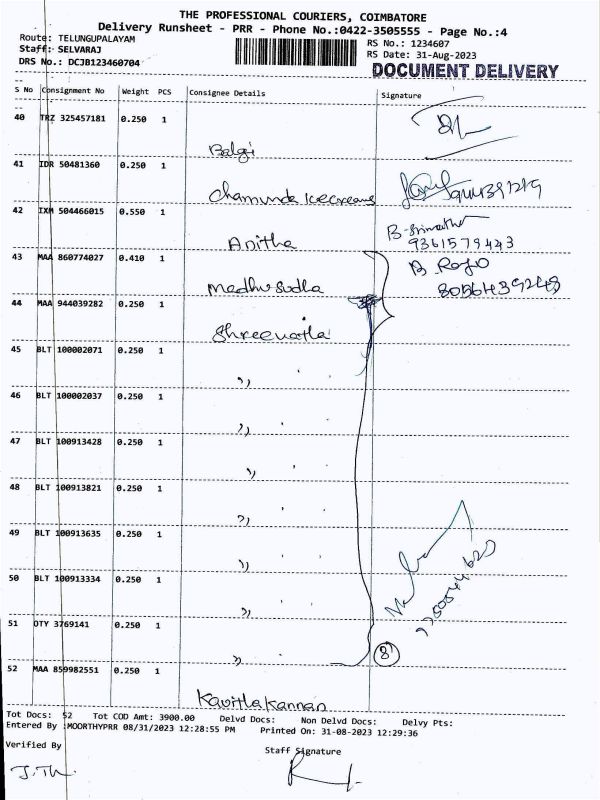 THE PROFESSIONAL COURIERS, COIMBATORE
Delivery Runsheet - PRR - Phone No.:0422-3505555 - Page No.:4
Route: TELUNGUPALAYAM
RS No.: 1234607
Staff: SELVARAJ
RS Date: 31-Aug-2023
DRS No.: DCJB123460704
DOCUMENT DELIVERY
S No Consignment No Weight PCS Consignee Details Signature
40 TRZ 325457181 0.250 1
Balaji
41 IDR 50481360 0.250 1
Chamunda Icecreams
42 IXM 504466015 0.550 1
B-Srimathi
Anitha
9361579443
43 MAA 860774027 0.410 1
B. Raja
Madhusudha
44 MAA 944039282 0.250 1
Shreevatla
45 BLT 100002071 0.250 1
,,
46 BLT 100002037 0.250 1
,,
47 BLT 100913428 0.250 1
,,
48 BLT 100913821 0.250 1
,,
49 BLT 100913635 0.250 1
,,
50 BLT 100913334 0.250 1
,,
51 OTY 3769141 0.250 1
,,
8
52 MAA 859982551 0.250 1
Kavitla kannan
Tot Docs: 52 Tot COD Amt: 3900.00 Delvd Docs: Non Delvd Docs: Delvy Pts:
Entered By :MOORTHYPRR 08/31/2023 12:28:55 PM Printed On: 31-08-2023 12:29:36
Verified By
Staff Signature